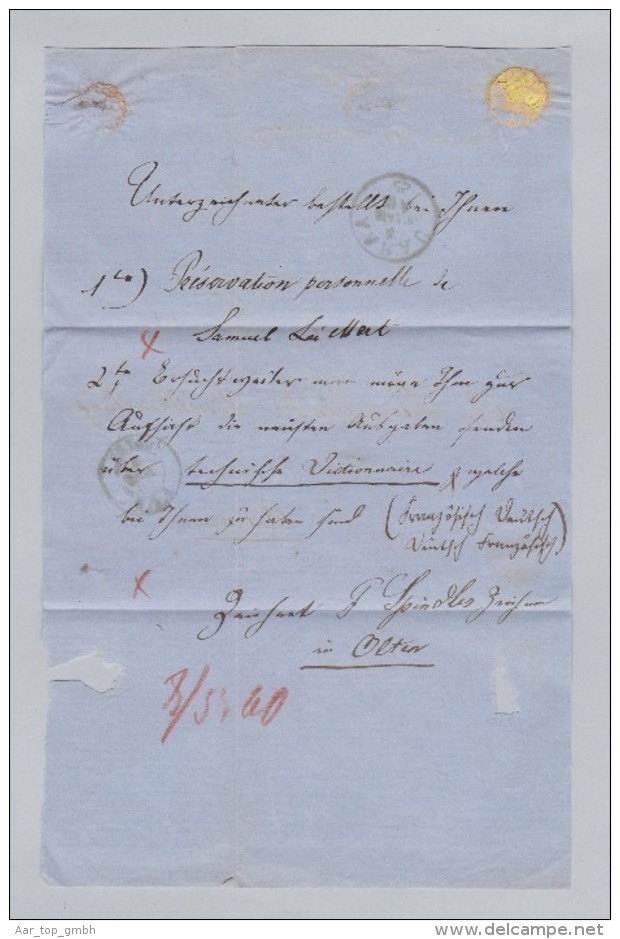 Unterzeichneter bestellt bei Ihnen
1to) Préservation personnelle de
Samuel La'Mert
2to, Ersucht weiter man möge Ihm zur
die neusten Ausgaben senden
über technische Dictionnaire welche
bei Ihnen zu haben sind (Französisch Deutsch
Deutsch Französisch)
Zeichnet Spindler
in Olten
Aar_top_gmbh
www.delcampe.net